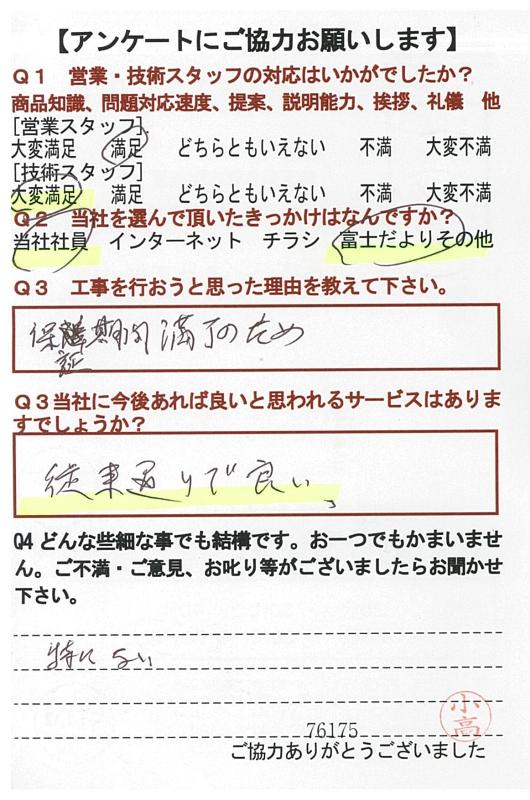 【アンケートにご協力お願いします】
Q1 営業・技術スタッフの対応はいかがでしたか?
商品知識、問題対応速度、提案、説明能力、挨拶、礼儀 他
[営業スタッフ]
大変満足 満足 どちらともいえない 不満 大変不満
[技術スタッフ]
大変満足 満足 どちらともいえない 不満 大変不満
Q2 当社を選んで頂いたきっかけはなんですか?
当社社員 インターネット チラシ 富士だよりその他
Q3 工事を行おうと思った理由を教えて下さい。
保証期間満了のため
Q3当社に今後あれば良いと思われるサービスはありま
すでしょうか?
従来通りで良い。
Q4 どんな些細な事でも結構です。お一つでもかまいませ
ん。ご不満・ご意見、お叱り等がございましたらお聞かせ
下さい。
特にない
小高
76175
ご協力ありがとうございました